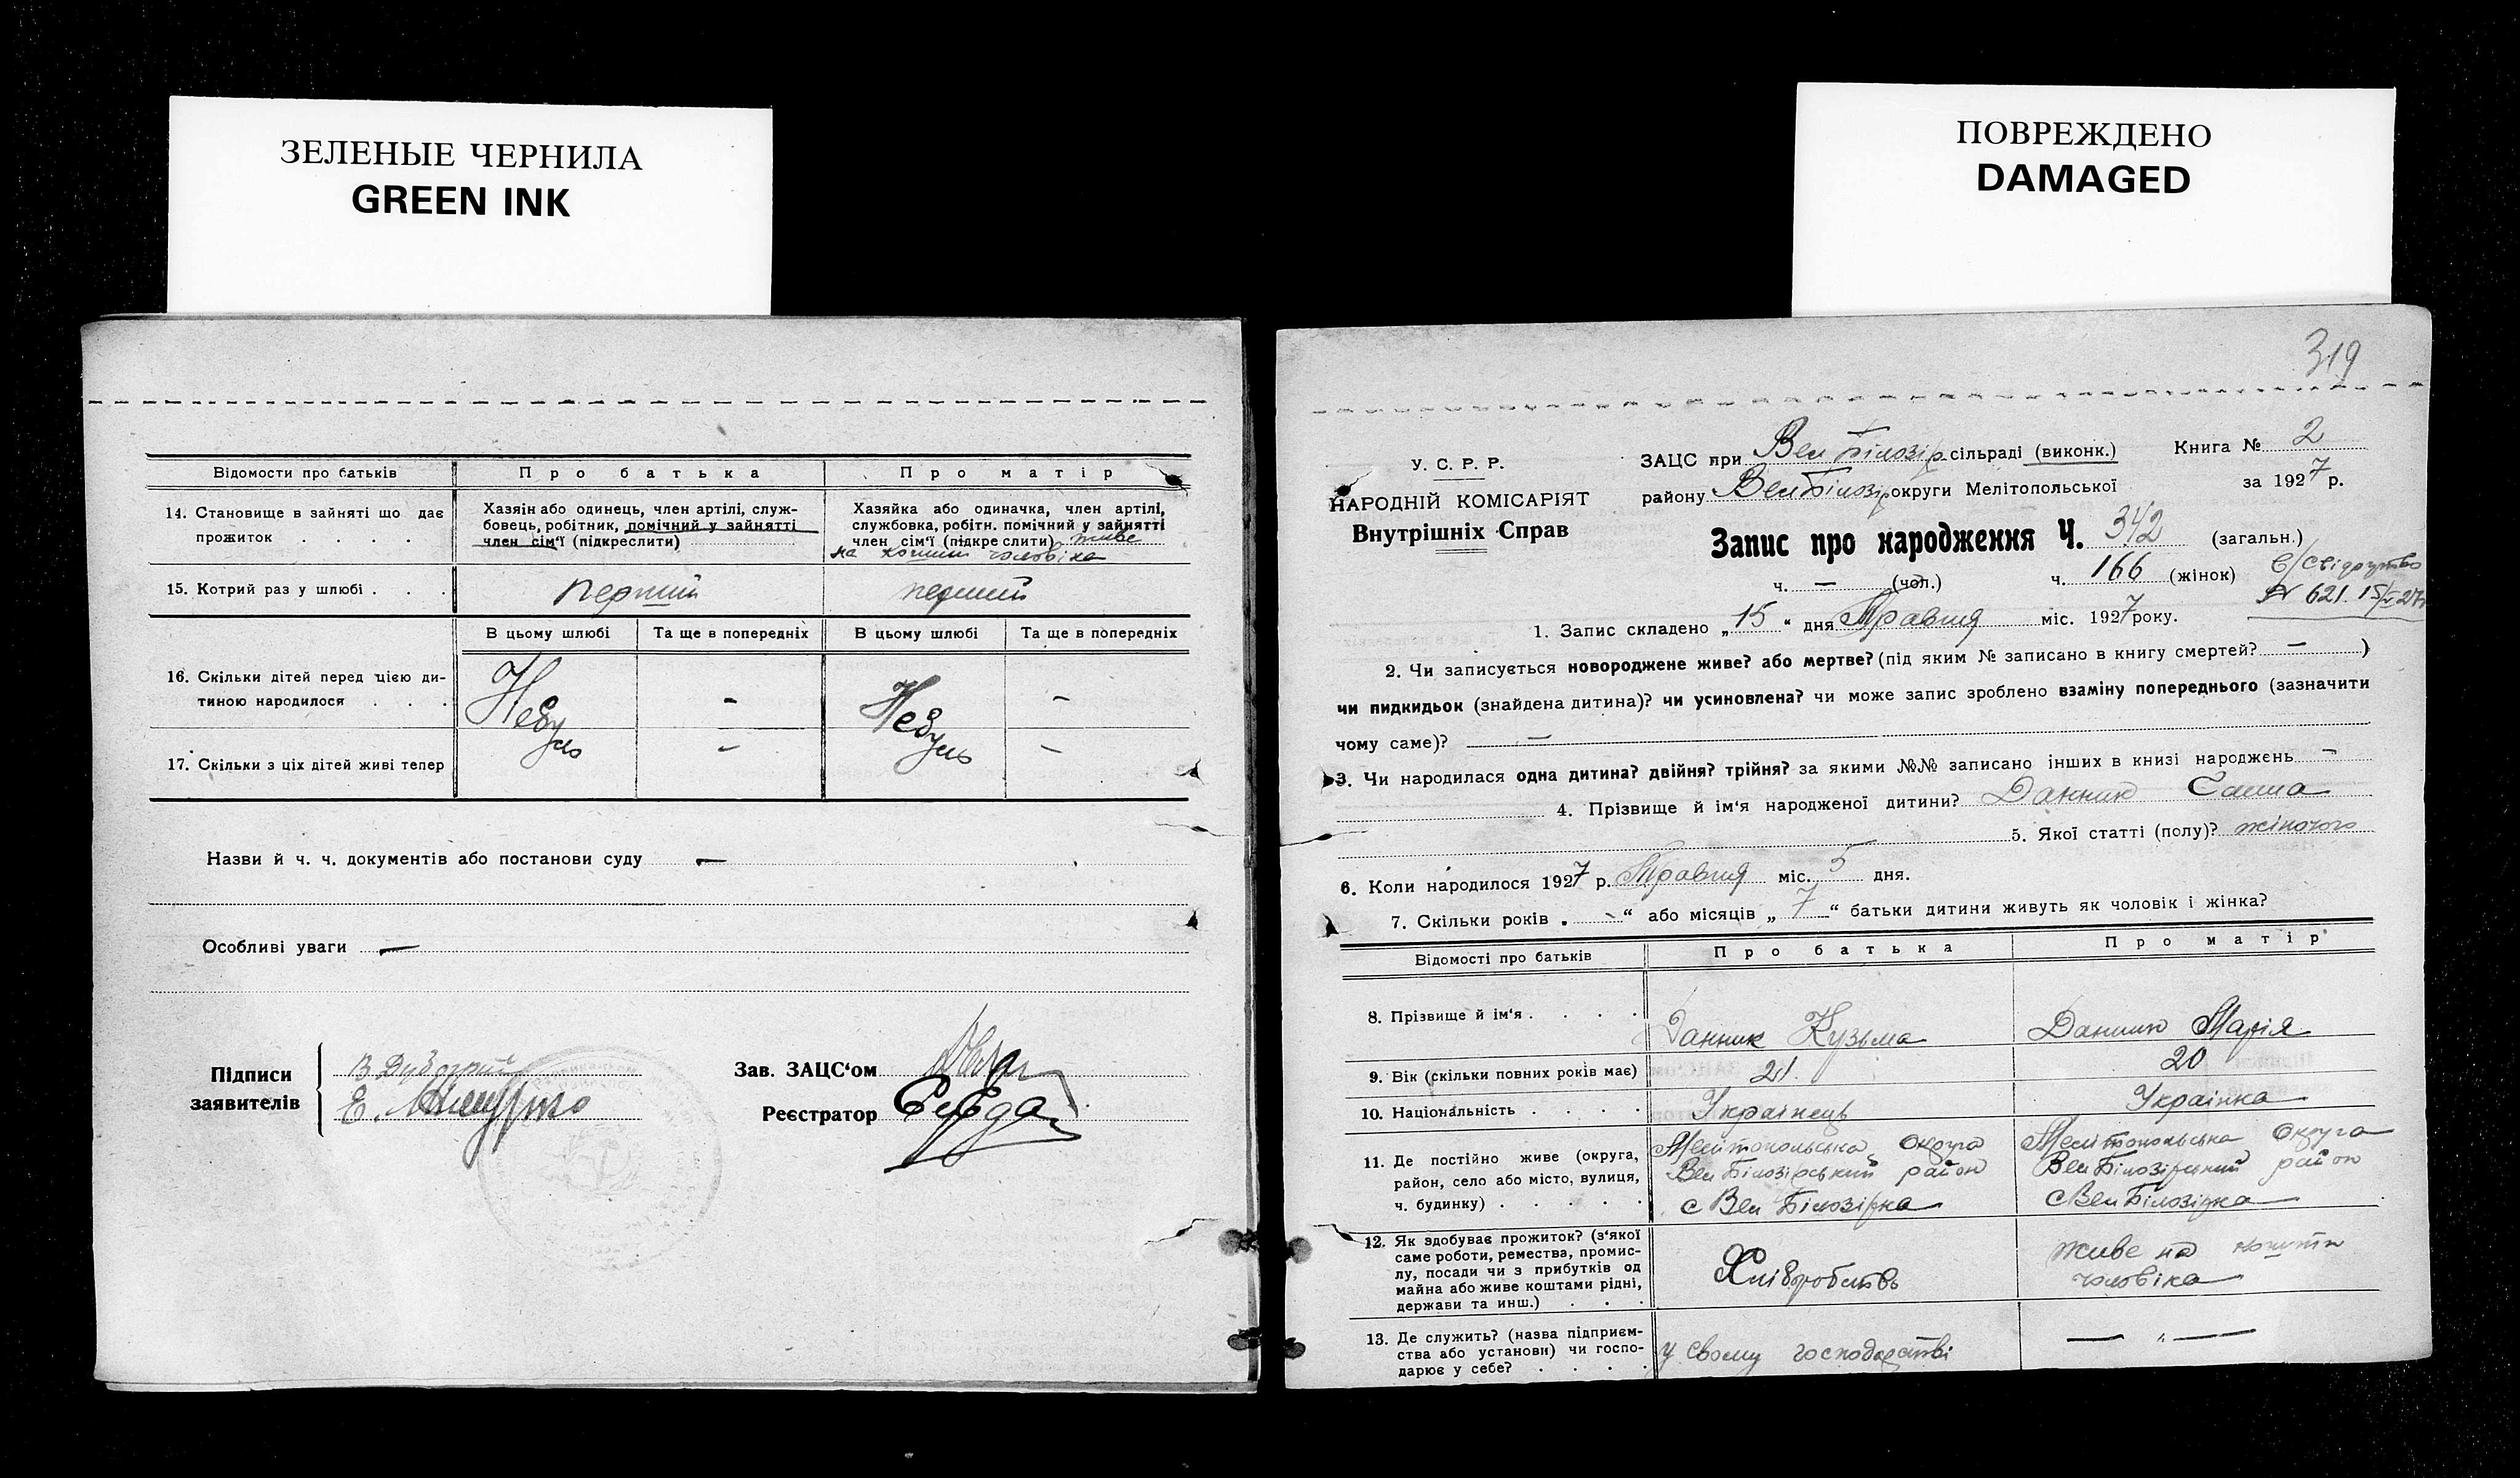 ЗЕЛЕНЫЕ ЧЕРНИЛА
GREEN INK
ПОВРЕЖДЕНО
DAMAGED
Відомости про батьків
Про батька
Про матір
14. Становище в зайняті що дає
прожиток . . . .
Хазяін або одинець, член артілі, служ-
бовець, робітник, помічний у зайнятті
член сім'ї (підкреслити)
Хазяйка або одиначка, член артілі,
службовка, робітн. помічний у зайнятті
член сім'ї (підкреслити) живе
на кошти чоловіка
15. Котрий раз у шлюбі . . .
перший
перший
В цьому шлюбі
Та ще в попередніх
В цьому шлюбі
Та ще в попередніх
16. Скільки дітей перед цією ди-
тиною народилося . . .
Небуло
-
Небуло
-
17. Скільки з ціх дітей живі тепер
-
-
Назви й ч. ч. документів або постанови суду —
Особливі уваги —
Підписи
заявителів
Зав. ЗАЦС'ом
Реєстратор
319
У. С. Р. Р.
НАРОДНІЙ КОМІСАРІЯТ
Внутрішніх Справ
ЗАЦС при Вел Білозір сільраді (виконк.)
Книга № 2
району Вел Білозір округи Мелітопольської
за 1927 р.
Запис про народження Ч. 342 (загальн.)
ч. — (чол.)
ч. 166 (жінок)
№ 621. 15/V 27
1. Запис складено „15“ дня Травня міс. 1927 року.
2. Чи записується новороджене живе? або мертве? (під яким № записано в книгу смертей? — )
чи пидкидьок (знайдена дитина)? чи усиновлена? чи може запис зроблено взаміну попереднього (зазначити
чому саме)? —
3. Чи народилася одна дитина? двійня? трійня? за якими №№ записано інших в книзі народжень —
4. Прізвище й ім'я народженої дитини? Данник Саша
5. Якої статті (полу)? жіночого
6. Коли народилося 1927 р. Травня міс. 5 дня.
7. Скільки років „ - “ або місяців „ 7 “ батьки дитини живуть як чоловік і жінка?
Відомості про батьків
Про батька
Про матір
8. Прізвище й ім'я . . . .
Данник Кузьма
Данник Марія
9. Вік (скільки повних років має)
21.
20
10. Національність . . . .
Українець
Українка
11. Де постійно живе (округа,
район, село або місто, вулиця,
ч. будинку) . . . .
Мелітопольська Округа
Вел Білозірський район
с Вел Білозірка
Мелітопольська Округа
Вел Білозірський район
с Вел Білозірка
12. Як здобуває прожиток? (з'якої
саме роботи, ремества, промис-
лу, посади чи з прибутків од
майна або живе коштами рідні,
держави та инш.) . . .
Хліборобств
живе на кошти
чоловіка
13. Де служить? (назва підприєм-
ства або установи) чи госпо-
дарює у себе? . . . .
у своему господарстві
— „ —